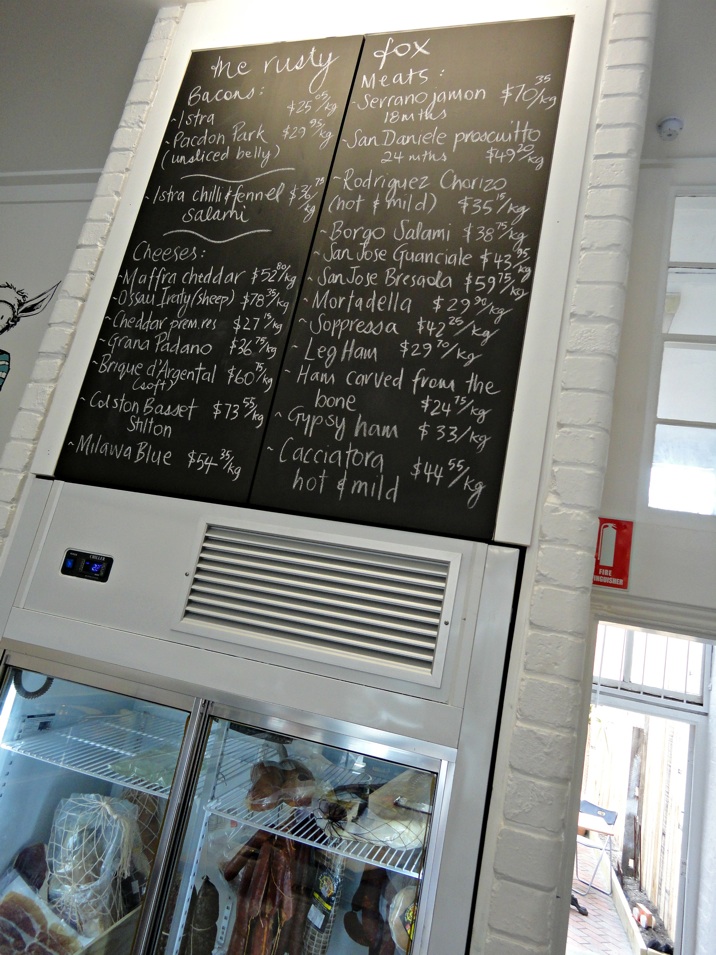 the rusty fox
Bacons:
~Istra $25.05/kg
~Pacdon Park $29.95/kg
(unsliced belly)
~Istra chilli & fennel $36.75/kg
salami
Cheeses:
~Maffra cheddar $52.80/kg
~Ossau Iraty (sheep) $78.35/kg
~Cheddar prem.res $27.15/kg
~Grana Padano $36.75/kg
~Brique d'Argental $60.75/kg
(soft)
~Colston Basset $73.55/kg
Stilton
~Milawa Blue $54.35/kg
Meats:
~Serrano jamon $70.35/kg
18mths
~San Daniele proscuitto
24 mths $49.20/kg
~Rodriguez Chorizo
(hot & mild) $35.15/kg
~Borgo Salami $38.75/kg
~San Jose Guanciale $43.95/kg
~San Jose Bresaola $59.75/kg
~Mortadella $29.90/kg
~Soppressa $42.25/kg
~Leg Ham $29.70/kg
~Ham carved from the
bone $24.75/kg
~Gypsy ham $33/kg
~Cacciatora $44.55/kg
hot & mild
FIRE